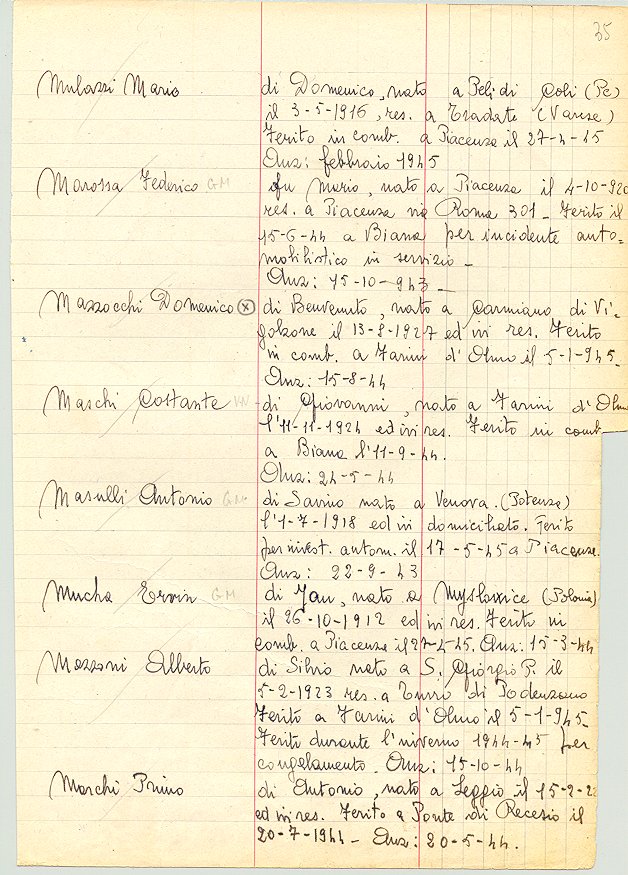 35
Mulazzi Mario di Domenico, nato a Peli di Coli (Pc)
il 3-5-1916, res. a Tradate (Varese)
Ferito in comb. a Piacenza il 27-4-45
Anz: febbraio 1945
Marossa Federico GM fu Mario, nato a Piacenza il 4-10-920
res. a Piacenza via Roma 301 - Ferito il
15-6-44 a Biana per incidente auto=
mobilistico in servizio -
Anz: 15-10-943 -
Mazzocchi Domenico (x) di Benvenuto, nato a Carmiano di Vi=
golzone il 13-8-1927 ed ivi res. Ferito
in comb. a Farini d'Olmo il 5-1-945.
Anz: 15-8-44
Maschi Costante di Giovanni, nato a Farini d'Olmo
l'11-11-1924 ed ivi res. Ferito in comb.
a Biana l'11-9-44.
Anz: 24-5-44
Masulli Antonio GM di Savino nato a Venova. (Potenza)
l'1-7-1918 ed ivi domiciliato. Ferito
per invest. autom. il 17-5-45 a Piacenza.
Anz: 22-9-43
Mucha Ervin GM di Jan, nato a Myslowice (Polonia)
il 26-10-1912 ed ivi res. Ferito in
comb. a Piacenza il 27-4-45. Anz: 15-3-44
Mozzoni Alberto di Silvio nato a S. Giorgio P. il
5-2-1923 res. a Turro di Podenzano
Ferito a Farini d'Olmo il 5-1-945.
Ferito durante l'inverno 1944-45 per
congelamento. Anz: 15-10-44
Marchi Primo di Antonio, nato a Leggio il 15-2-2
ed ivi res. Ferito a Ponte di Recesio il
20-7-1944 - Anz: 20-5-44.